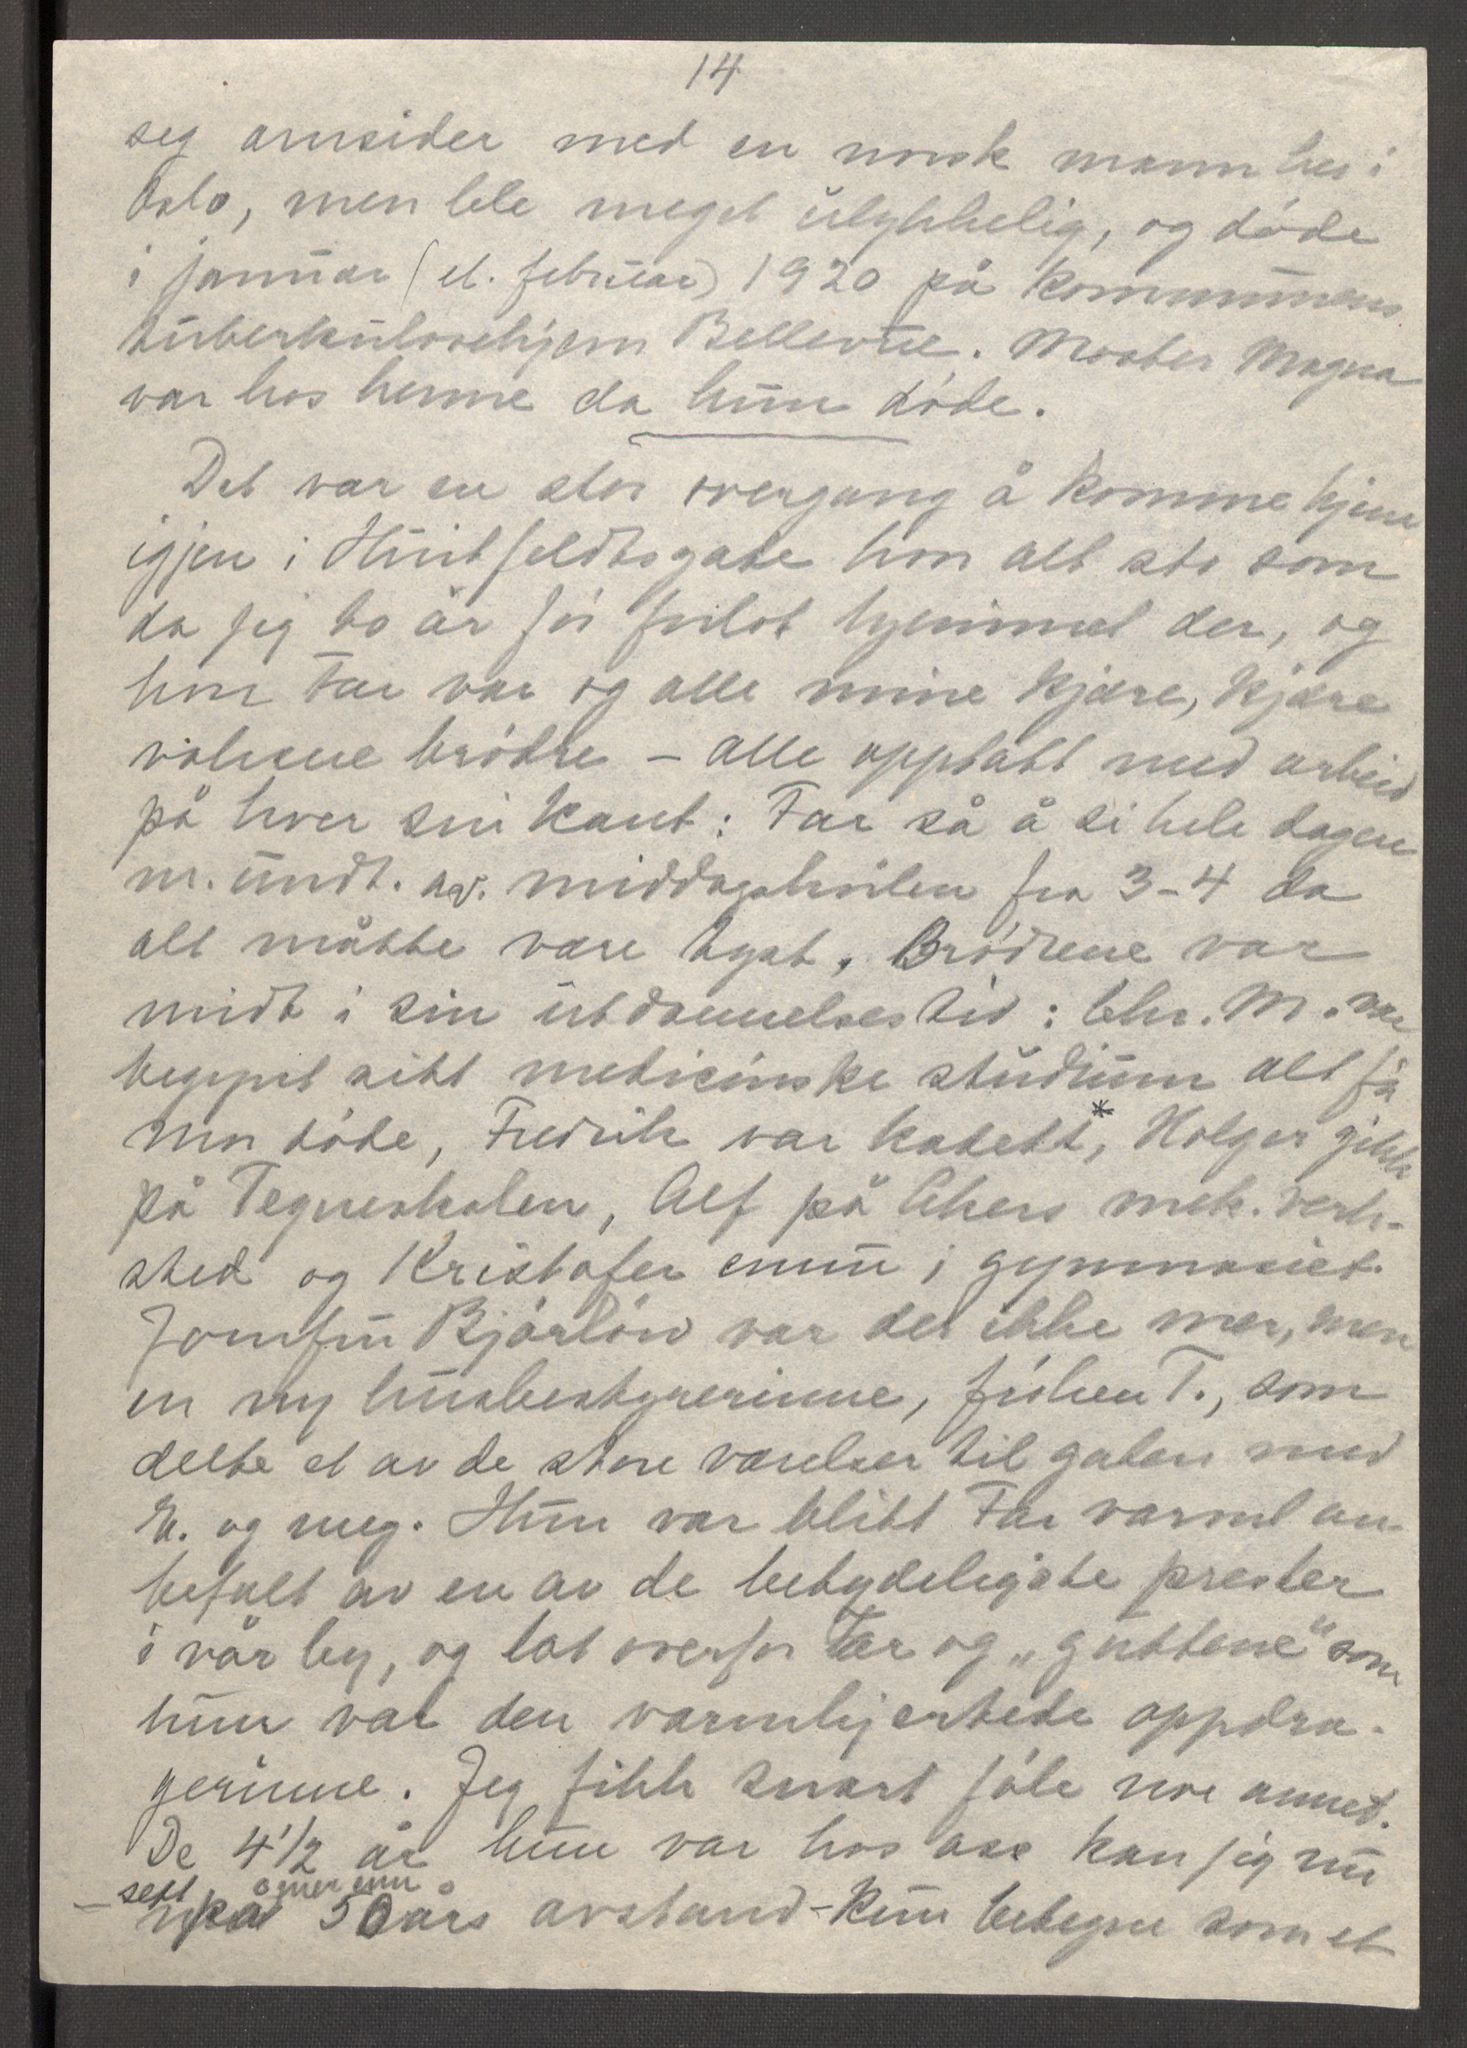 14
seg omsider med en norsk mann her i
Oslo, men ble meget ulykkelig, og döde
i januar (el. februar) 1920 på Kommunens
tuberkulosehjem Bellevue. Moster Magna
var hos henne da hun döde.
Det var en stor overgang å komme hjem
igjen i Huitfeldtsgate hvor alt sto som
da jeg to år för forlot hjemmet der, og
hvor Far var og alle mine kjære, kjære
voksne brödre – alle opptatt med arbeid
på hver sin kant: Far så å si hele dagen
m. undt. av. middagshvilen fra 3–4 da
alt måtte være tyst. Brödrene var
midt i sin utdannelsestid: Chr. M. var
begynt sitt medicinske studium alt få
Mor döde, Fredrik var kadett*, Holger gikk
på Tegneskolen, Alf på Akers mek. verk-
sted og Kristofer ennu i gymnasiet.
Jomfru Björlöw var der ikke mer, men
en ny husbestyrerinne, fröken T., som
delte et av de store værelser til gaten med
E. og meg. Hun var blitt Far varmt an-
befalt av en av de betydeligste prester
i vår by, og lot overfor Far og „guttene" som
hun var den varmhjertede oppdra-
gerinne. Jeg fikk snart föle noe annet.
De 4½ år hun var hos oss kan jeg nu
– sett på mer enn 50 års avstand – kun betegne som et